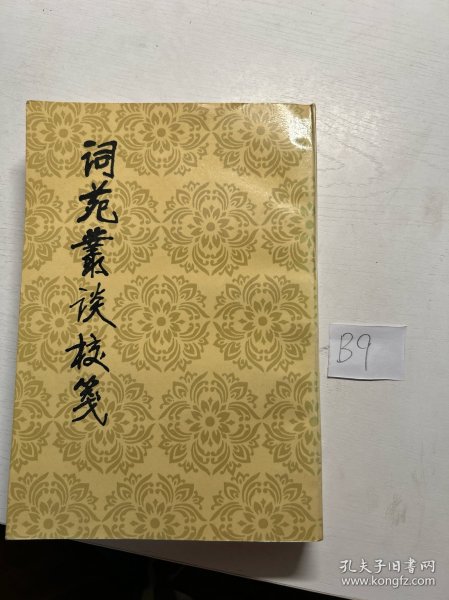 词苑叢谈校笺
B9
孔夫子旧书网
www.kongfz.com